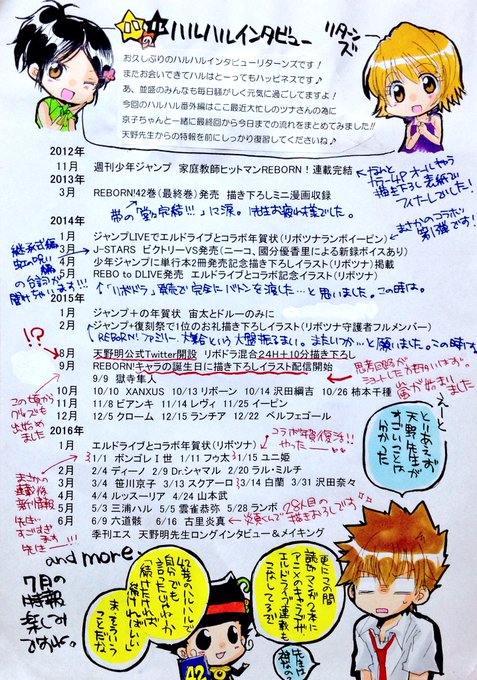 ハルハルインタビュー
リターンズ
お久しぶりのハルハルインタビューリターンズです！
またお会いできてハルはとってもハッピネスです♪
あ、並盛のみんなも毎日騒がしく元気に過ごしてますよ！
今回のハルハル番外編はここ最近大忙しのツナさんの為に
京子ちゃんと一緒に最終回から今日までの流れをまとめてみました!!
天野先生からの特報を前にしっかり復習してくださいね♪
2012年
11月 週刊少年ジャンプ 家庭教師ヒットマンREBORN！連載完結
←なんと
カラー4P オールキャラ
描き下ろし表紙で
フィナーレでした！
2013年
3月 REBORN!42巻（最終巻）発売 描き下ろしミニ漫画収録
帯の「堂々完結!!!」に涙。先生お疲れ様でした。
2014年
まさかのコラボツ
第1弾です！
1月 ジャンプLIVEでエルドライブとコラボ年賀状（リボツナランボイーピン）
3月 J-STARS ビクトリーVS発売（ニーコ、國分優香里による新録ボイスあり）
4月 少年ジャンプに単行本2冊発売記念描き下ろしイラスト（リボツナ）掲載
5月 REBO to DLIVE発売 エルドライブとコラボ記念イラスト（リボツナ）
継承式編
虹の呪い編
の台詞が
聞けちゃいます!!
↑「リボドラ」発売で完全にバトンを渡した…と思いました。この時は。
2015年
1月 ジャンプ＋の年賀状 宙太とドルーのみに
2月 ジャンプ＋復刻祭で1位のお礼描き下ろしイラスト（リボツナ守護者フルメンバー）
REBORN!ファミリー大集合という大盤振るまい。またいつか…と願いました。この時すら
!?
8月 天野明公式Twitter開設 リボドラ混合24H＋10分描き下ろし
9月 REBORN!キャラの誕生日に描き下ろしイラスト配信開始
思考回路が
ショートした方も多いはず。
嵐が始まりました
9/9 獄寺隼人
10月 10/10 XANXUS 10/13 リボーン 10/14 沢田綱吉 10/26 柿本千種
11月 11/8 ビアンキ 11/14 レヴィ 11/25 イーピン
12月 12/5 クローム 12/15 ランチア 12/22 ベルフェゴール
この頃から
グッズも
出始め
ました
2016年
1月 エルドライブとコラボ年賀状（リボツナ）
←コラボ年賀復活!!
やったー
1/1 ボンゴレⅠ世 1/11 フゥ太 1/15 ユニ姫
2月 2/4 ディーノ 2/9 Dr.シャマル 2/20 ラル・ミルチ
3月 3/4 笹川京子 3/13 スクアーロ 3/14 白蘭 3/31 沢田奈々
4月 4/4 ルッスーリア 4/24 山本武
5月 5/3 三浦ハル 5/5 雲雀恭弥 5/28 ランボ
6月 6/9 六道骸 6/16 古里炎真
28人目の
炎真くんで描きおろしです
季刊エス 天野明先生ロングインタビュー＆メイキング
まさかの
連載後
新情報
先生…
すごすぎ
ます
先生…!!!
えーと
とりあえず
天野先生が
すごいことは
分かった
and more.
7月の
特報
楽しみ
ですね。
42巻のハルハルで
自分でも
言ったじゃねーか
「続けたければ
続ければいい」
ま、そういう
ことだな
更にこの間
読切マンガ2本に
アニメのキャラデザ
エルドライブ連載も
こなしてるぞ
先生は
神なの!?
42